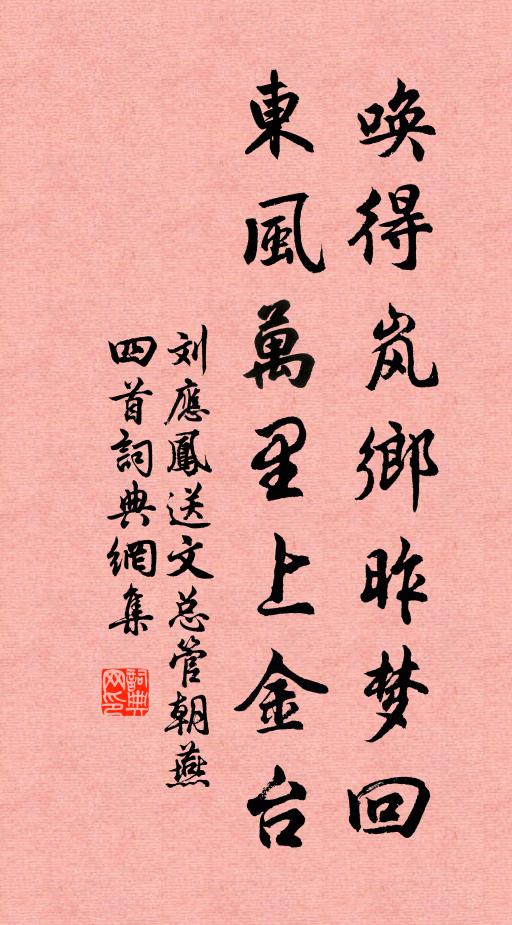 唤得岚鄉昨梦回
東風萬里上金台
刘應鳳送文总管朝燕
四首詞典網集
詞典网印